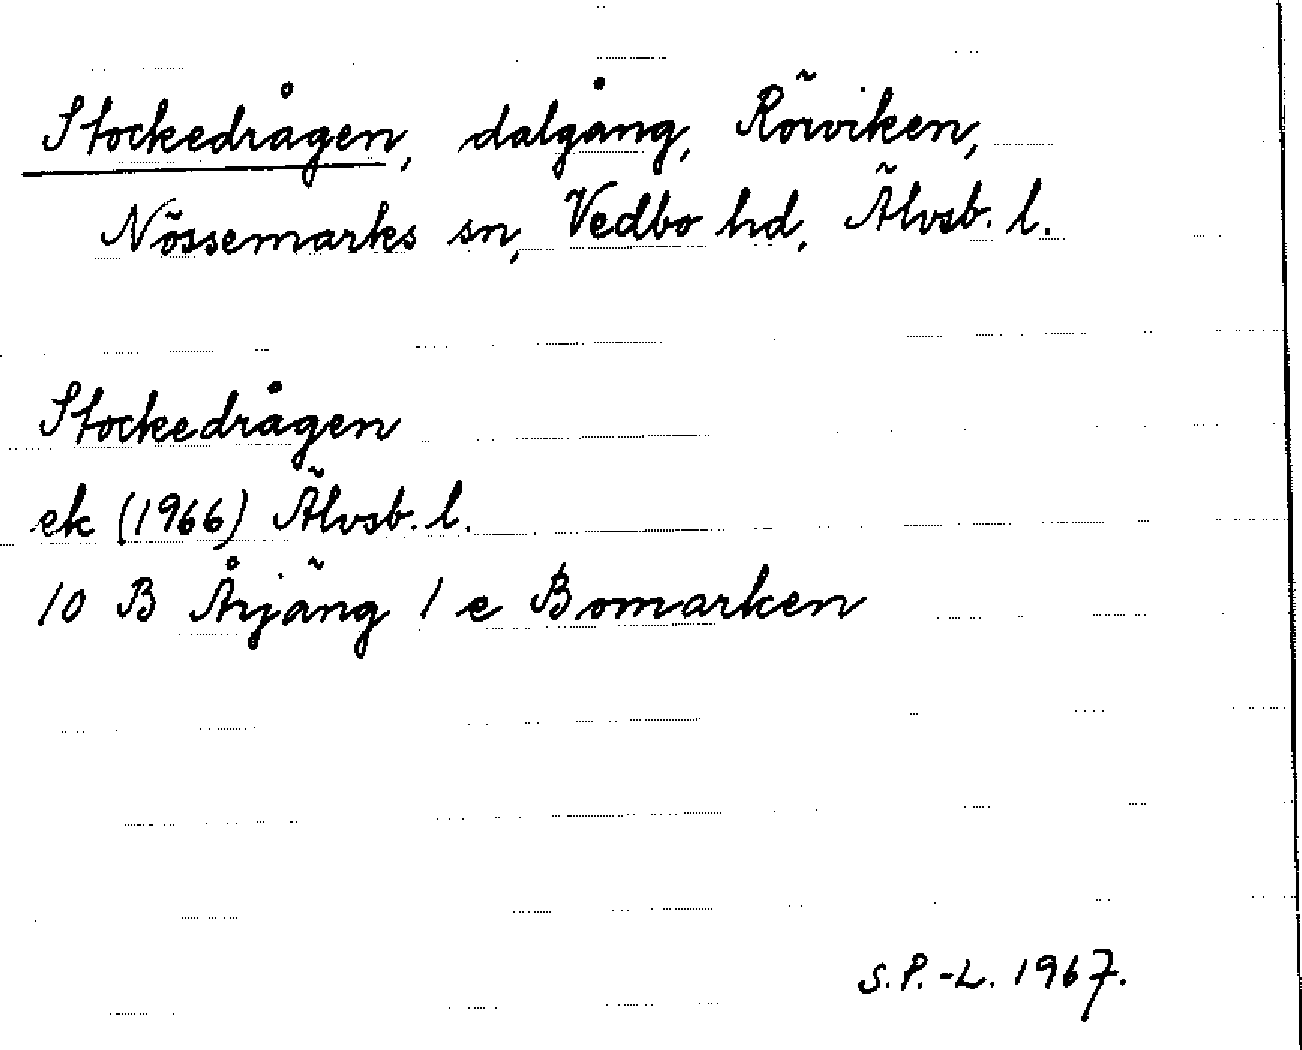 Stockedrågen, dalgång, Rörviken,
Nössemarks sn, Vedbo hd, Älvsb. l.
Stockedrågen
ek (1966) Älvsb. l.
10 B Årjäng 1 e Bomarken
S.P.-L. 1967.